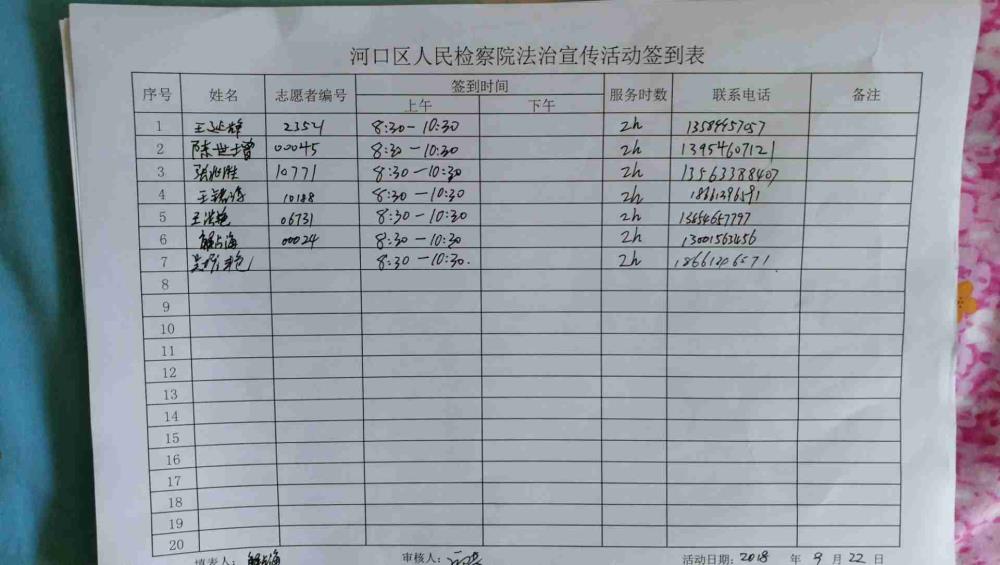 河口区人民检察院法治宣传活动签到表
序号 姓名 志愿者编号 签到时间 服务时数 联系电话 备注
上午 下午
1 23521 8:30-10:30 2h
2 陈世增 00045 8:30-10:30 2h 13954607121
3 张兆胜 10771 8:30-10:30 2h 13563388407
4 10188 8:30-10:30 2h 18661396591
5 王洪艳 06731 8:30-10:30 2h
6 解占海 00024 8:30-10:30 2h 13001563456
7 8:30-10:30. 2h
8
9
10
11
12
13
14
15
16
17
18
19
20
填表人: 解占海 审核人: 活动日期: 2018 年 9 月 22 日